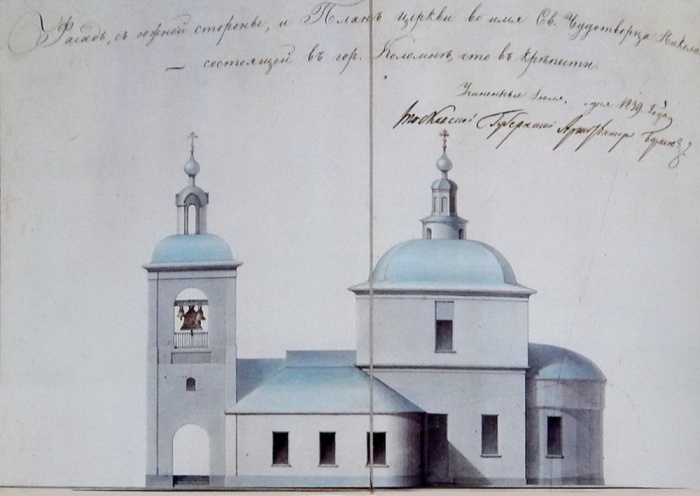 Фасадъ, съ южной стороны, и Планъ церкви во имя Св. Чудотворца Николая
— состоящей въ гор. Коломнѣ, что въ крѣпости.
1839 года
Московской Губернскій Архитекторъ